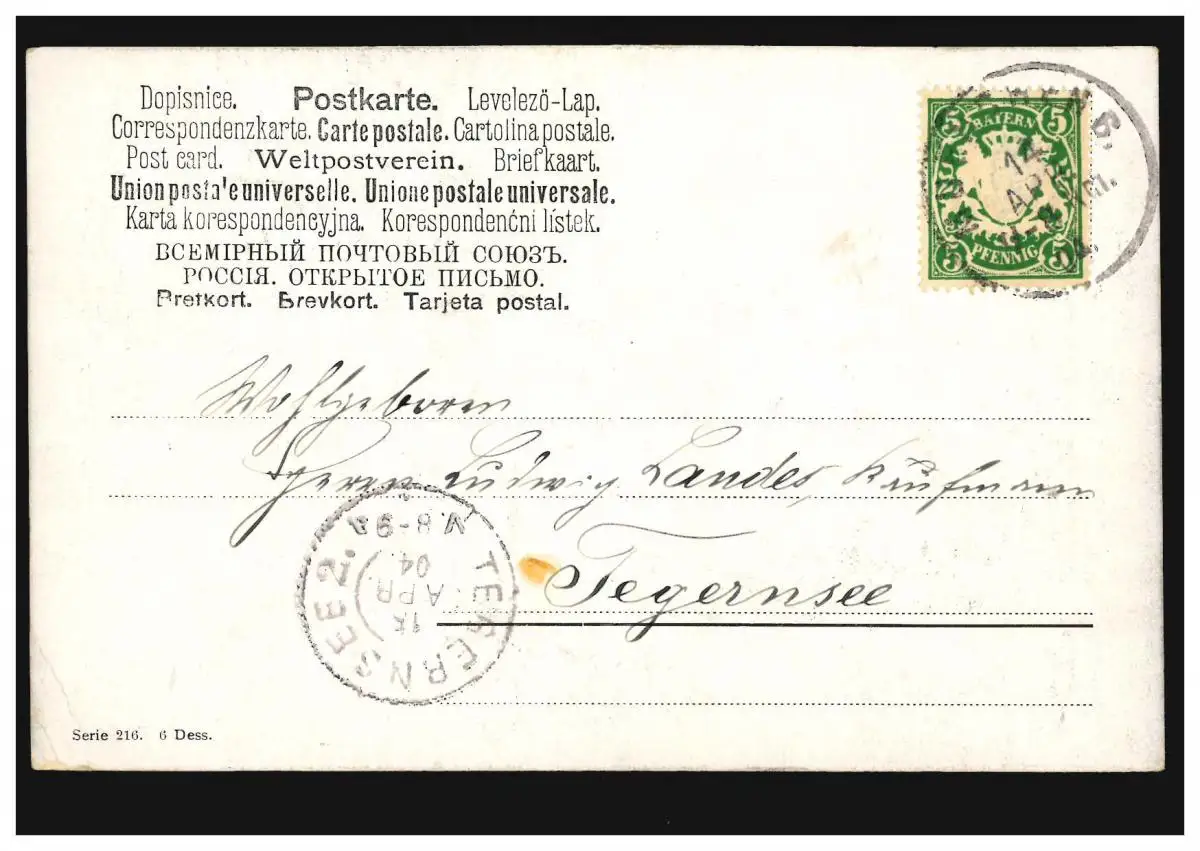 Dopisnice. Postkarte. Levelezö-Lap.
Correspondenzkarte. Carte postale. Cartolina postale.
Post card. Weltpostverein. Briefkaart.
Union postale universelle. Unione postale universale.
Karta korespondencyjna. Korespondenčni lístek.
ВСЕМІРНЫЙ ПОЧТОВЫЙ СОЮЗЪ.
РОССІЯ. ОТКРЫТОЕ ПИСЬМО.
Brefkort. Brevkort. Tarjeta postal.
5 BAYERN 5
5 PFENNIG 5
APR
04.
Wohlgeboren
Herrn Ludwig Landes, Kaufmann
Tegernsee
TEGERNSEE 2.
APR
04
V.8-9
Serie 216. 6 Dess.